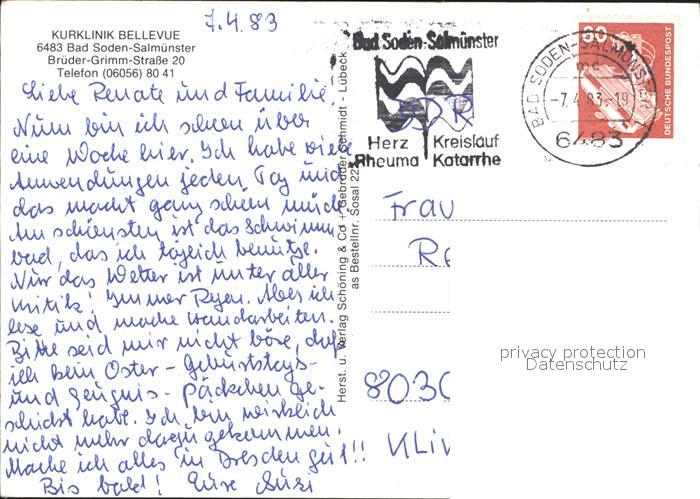 7.4.83
KURKLINIK BELLEVUE
6483 Bad Soden-Salmünster
Brüder-Grimm-Straße 20
Telefon (06056) 80 41
Liebe Renate und Familie,
Nun bin ich schon über
eine Woche hier. Ich habe viele
Anwendungen jeden Tag und
das macht ganz schön müde.
Am schönsten ist das Schwimm-
bad, das ich täglich benutze.
Nur das Wetter ist unter aller
Kritik! Immer Regen. Aber ich
lese und mache Handarbeiten.
Bitte seid mir nicht böse, daß
ich kein Oster- Geburtstags-
und Zeugnis- Päckchen ge-
schickt habe. Ich bin wirklich
nicht mehr dazu gekommen.
Mache ich alles in Dresden gut!!
Bis bald! Eure Susi
Herst. u. Verlag Schöning & Co + Gebrüder Schmidt - Lübeck
as Bestellnr. Sosal 22
Bad Soden-Salmünster
Herz Kreislauf
Rheuma Katarrhe
DDR
BAD SODEN-SALMÜNSTER
-7.4.83-19
6483
60
DEUTSCHE BUNDESPOST
Frau
Re
8030
Kli
privacy protection
Datenschutz